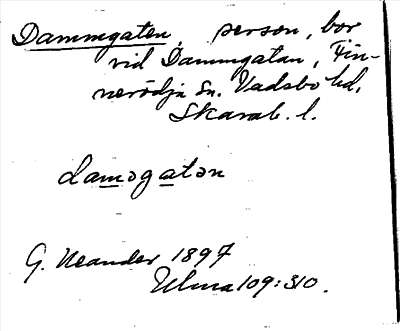 Dammgaten, person, bor
vid Dammgatan, Fin-
nerödja sn. Vadsbo hd,
Skarab. l.
damәgatәn
G. Neander 1897
Ulma 109:310.